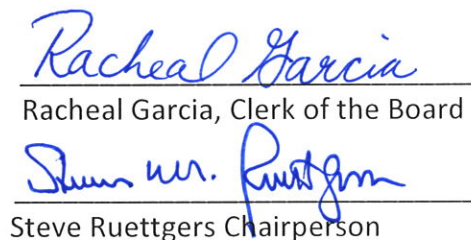 Racheal Garcia
Racheal Garcia, Clerk of the Board
Steve W. Ruettgers
Steve Ruettgers Chairperson